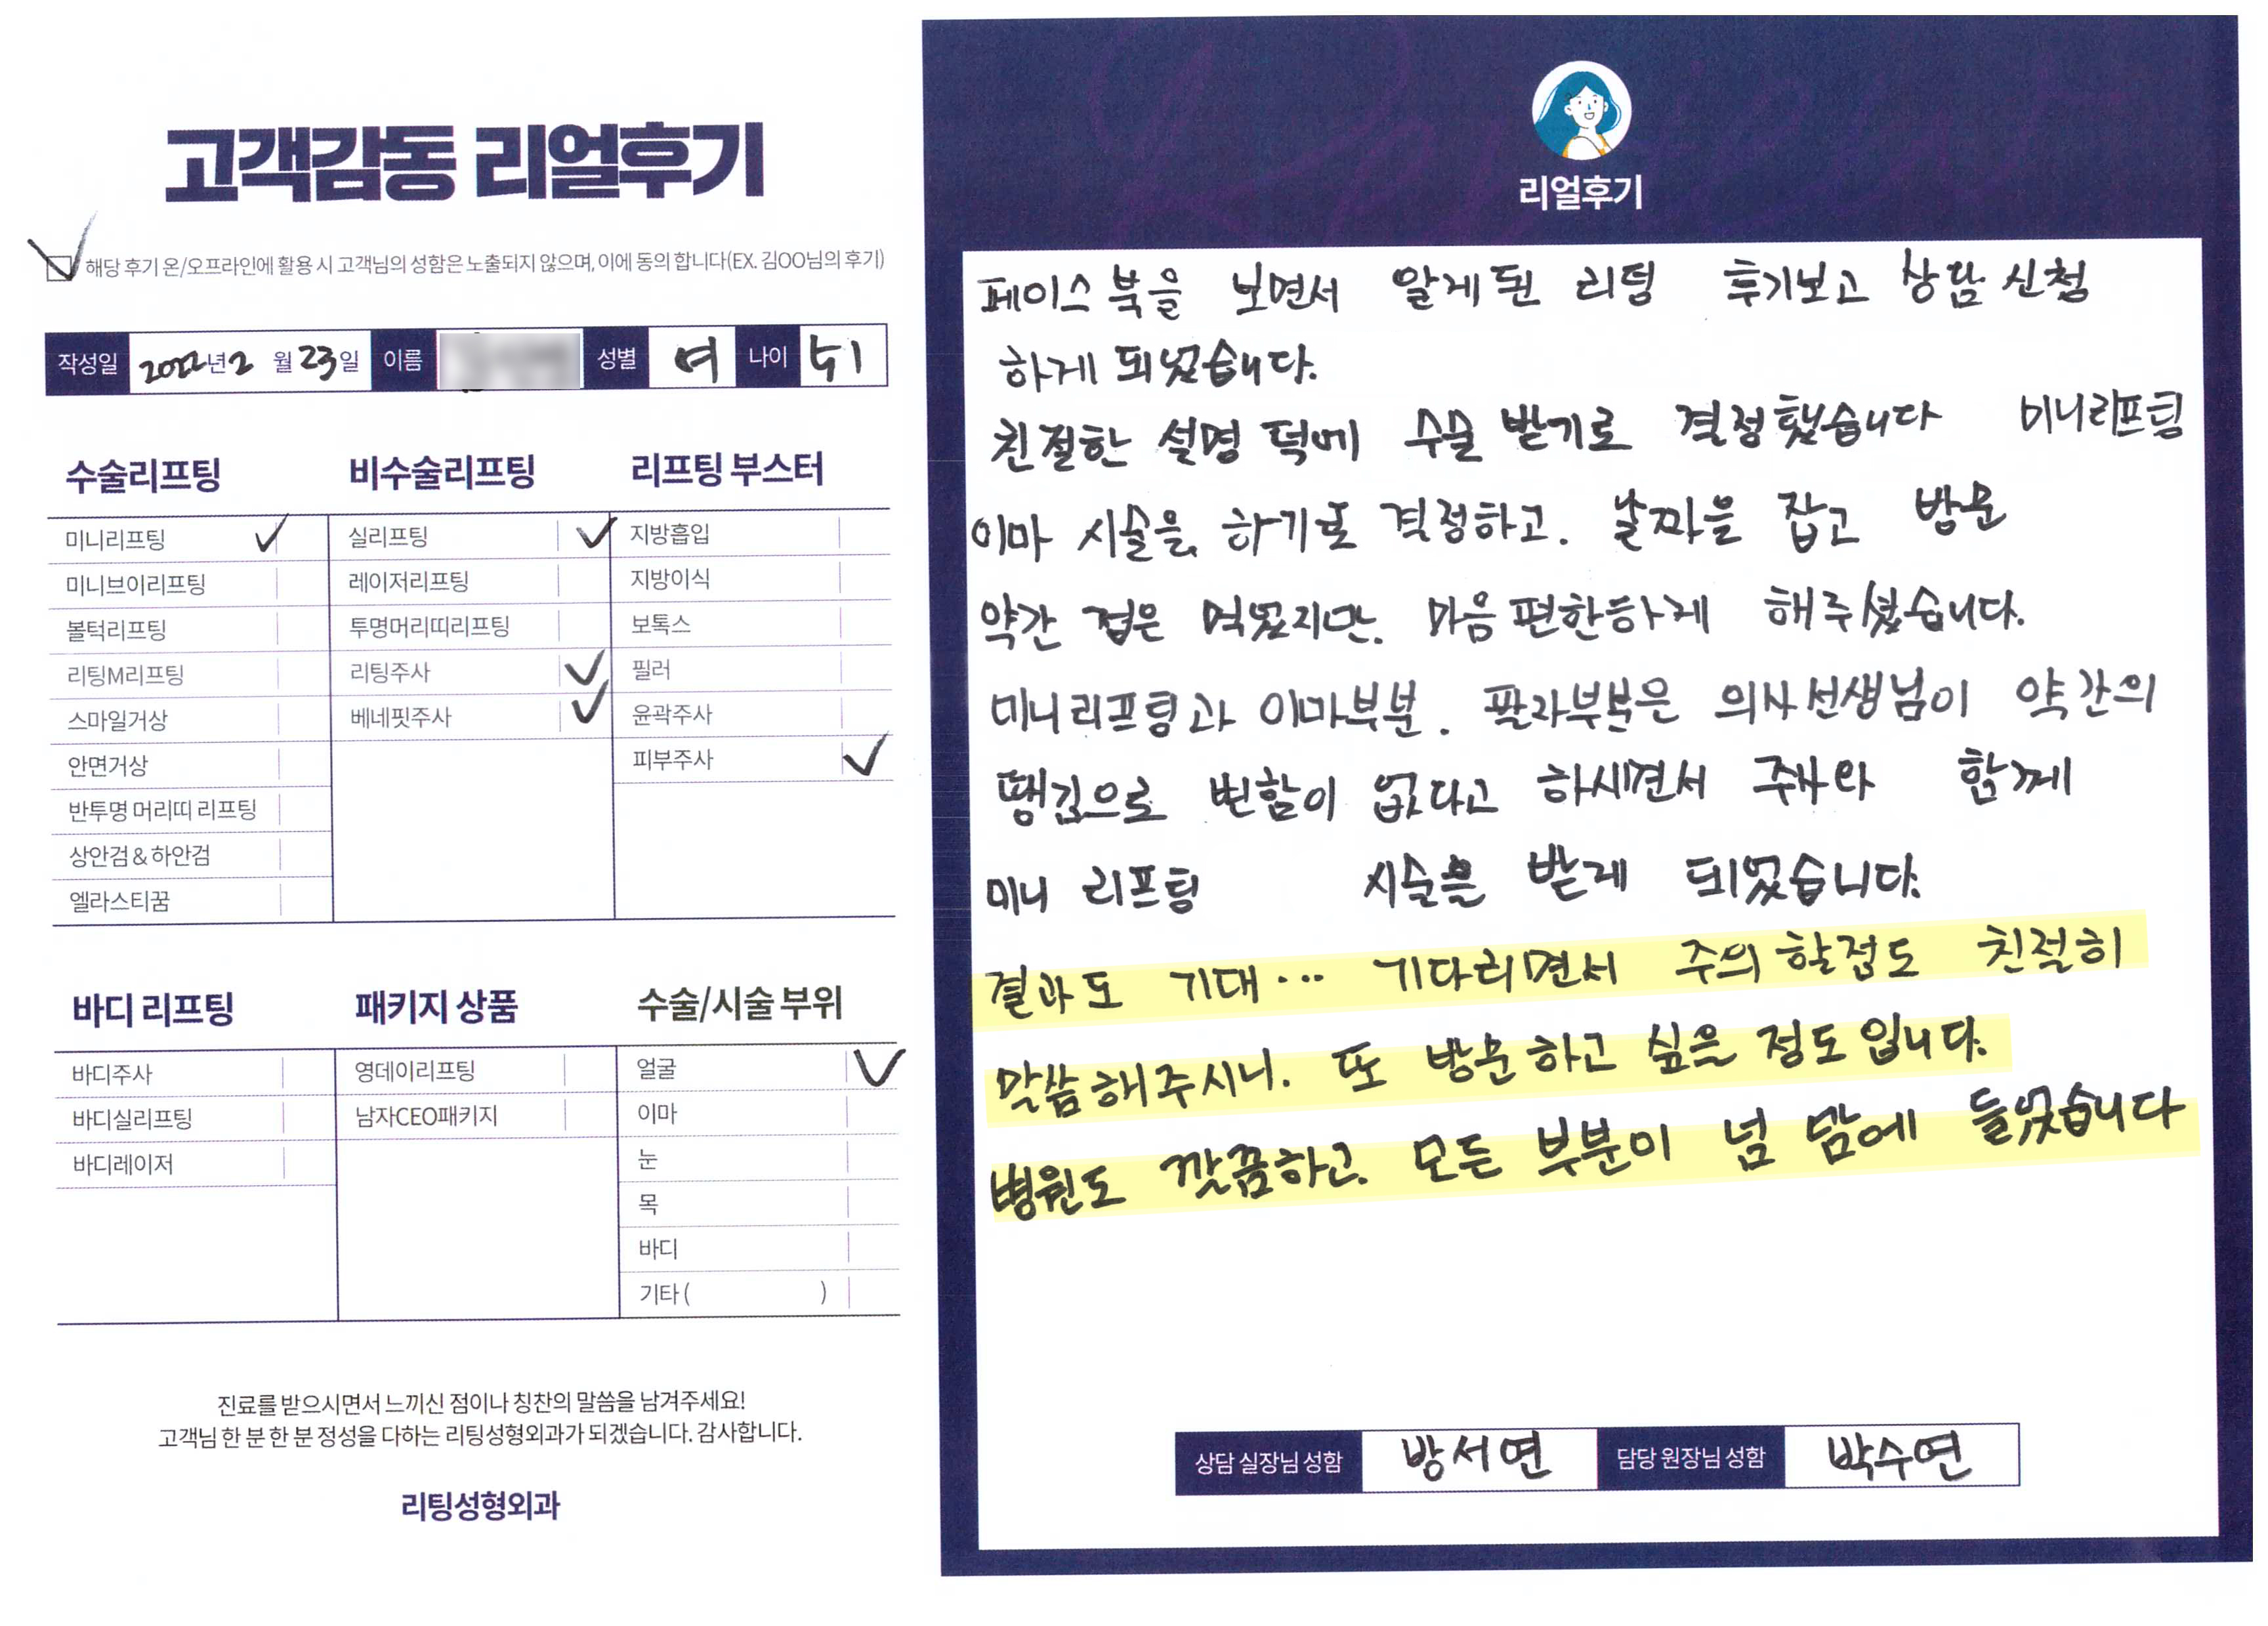 고객감동 리얼후기
해당 후기 온/오프라인에 활용 시 고객님의 성함은 노출되지 않으며, 이에 동의 합니다(EX. 김OO님의 후기)
작성일 2022년 2월 23일 이름 성별 여 나이 51
수술리프팅
미니리프팅
미니브이리프팅
볼턱리프팅
리팅M리프팅
스마일거상
안면거상
반투명 머리띠 리프팅
상안검 & 하안검
엘라스티꿈
비수술리프팅
실리프팅
레이저리프팅
투명머리띠리프팅
리팅주사
베네핏주사
리프팅 부스터
지방흡입
지방이식
보톡스
필러
윤곽주사
피부주사
바디 리프팅
바디주사
바디실리프팅
바디레이저
패키지 상품
영데이리프팅
남자CEO패키지
수술/시술 부위
얼굴
이마
눈
목
바디
기타 ( )
진료를 받으시면서 느끼신 점이나 칭찬의 말씀을 남겨주세요!
고객님 한 분 한 분 정성을 다하는 리팅성형외과가 되겠습니다. 감사합니다.
리팅성형외과
리얼후기
페이스북을 보면서 알게된 리팅 후기보고 상담 신청
하게 되었습니다.
친절한 설명 덕에 수술 받기로 결정했습니다 미니리프팅
이마 시술을 하기로 결정하고. 날짜을 잡고 방문
약간 겁은 먹었지만. 마음편한하게 해주셨습니다.
미니리프팅과 이마부분. 팔자부분은 의사선생님이 약간의
땡김으로 변함이 없다고 하시면서 주사와 함께
미니 리프팅 시술을 받게 되었습니다.
결과도 기대... 기다리면서 주의할점도 친절히
말씀해주시니. 또 방문하고 싶을 정도입니다.
병원도 깔끔하고. 모든 부분이 넘 맘에 들었습니다
상담 실장님 성함 방서연 담당 원장님 성함 박수연